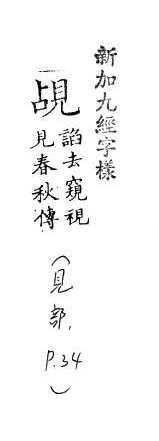 新加九經字樣
覘
諂去窺視
見春秋傳
(見部, P.34)